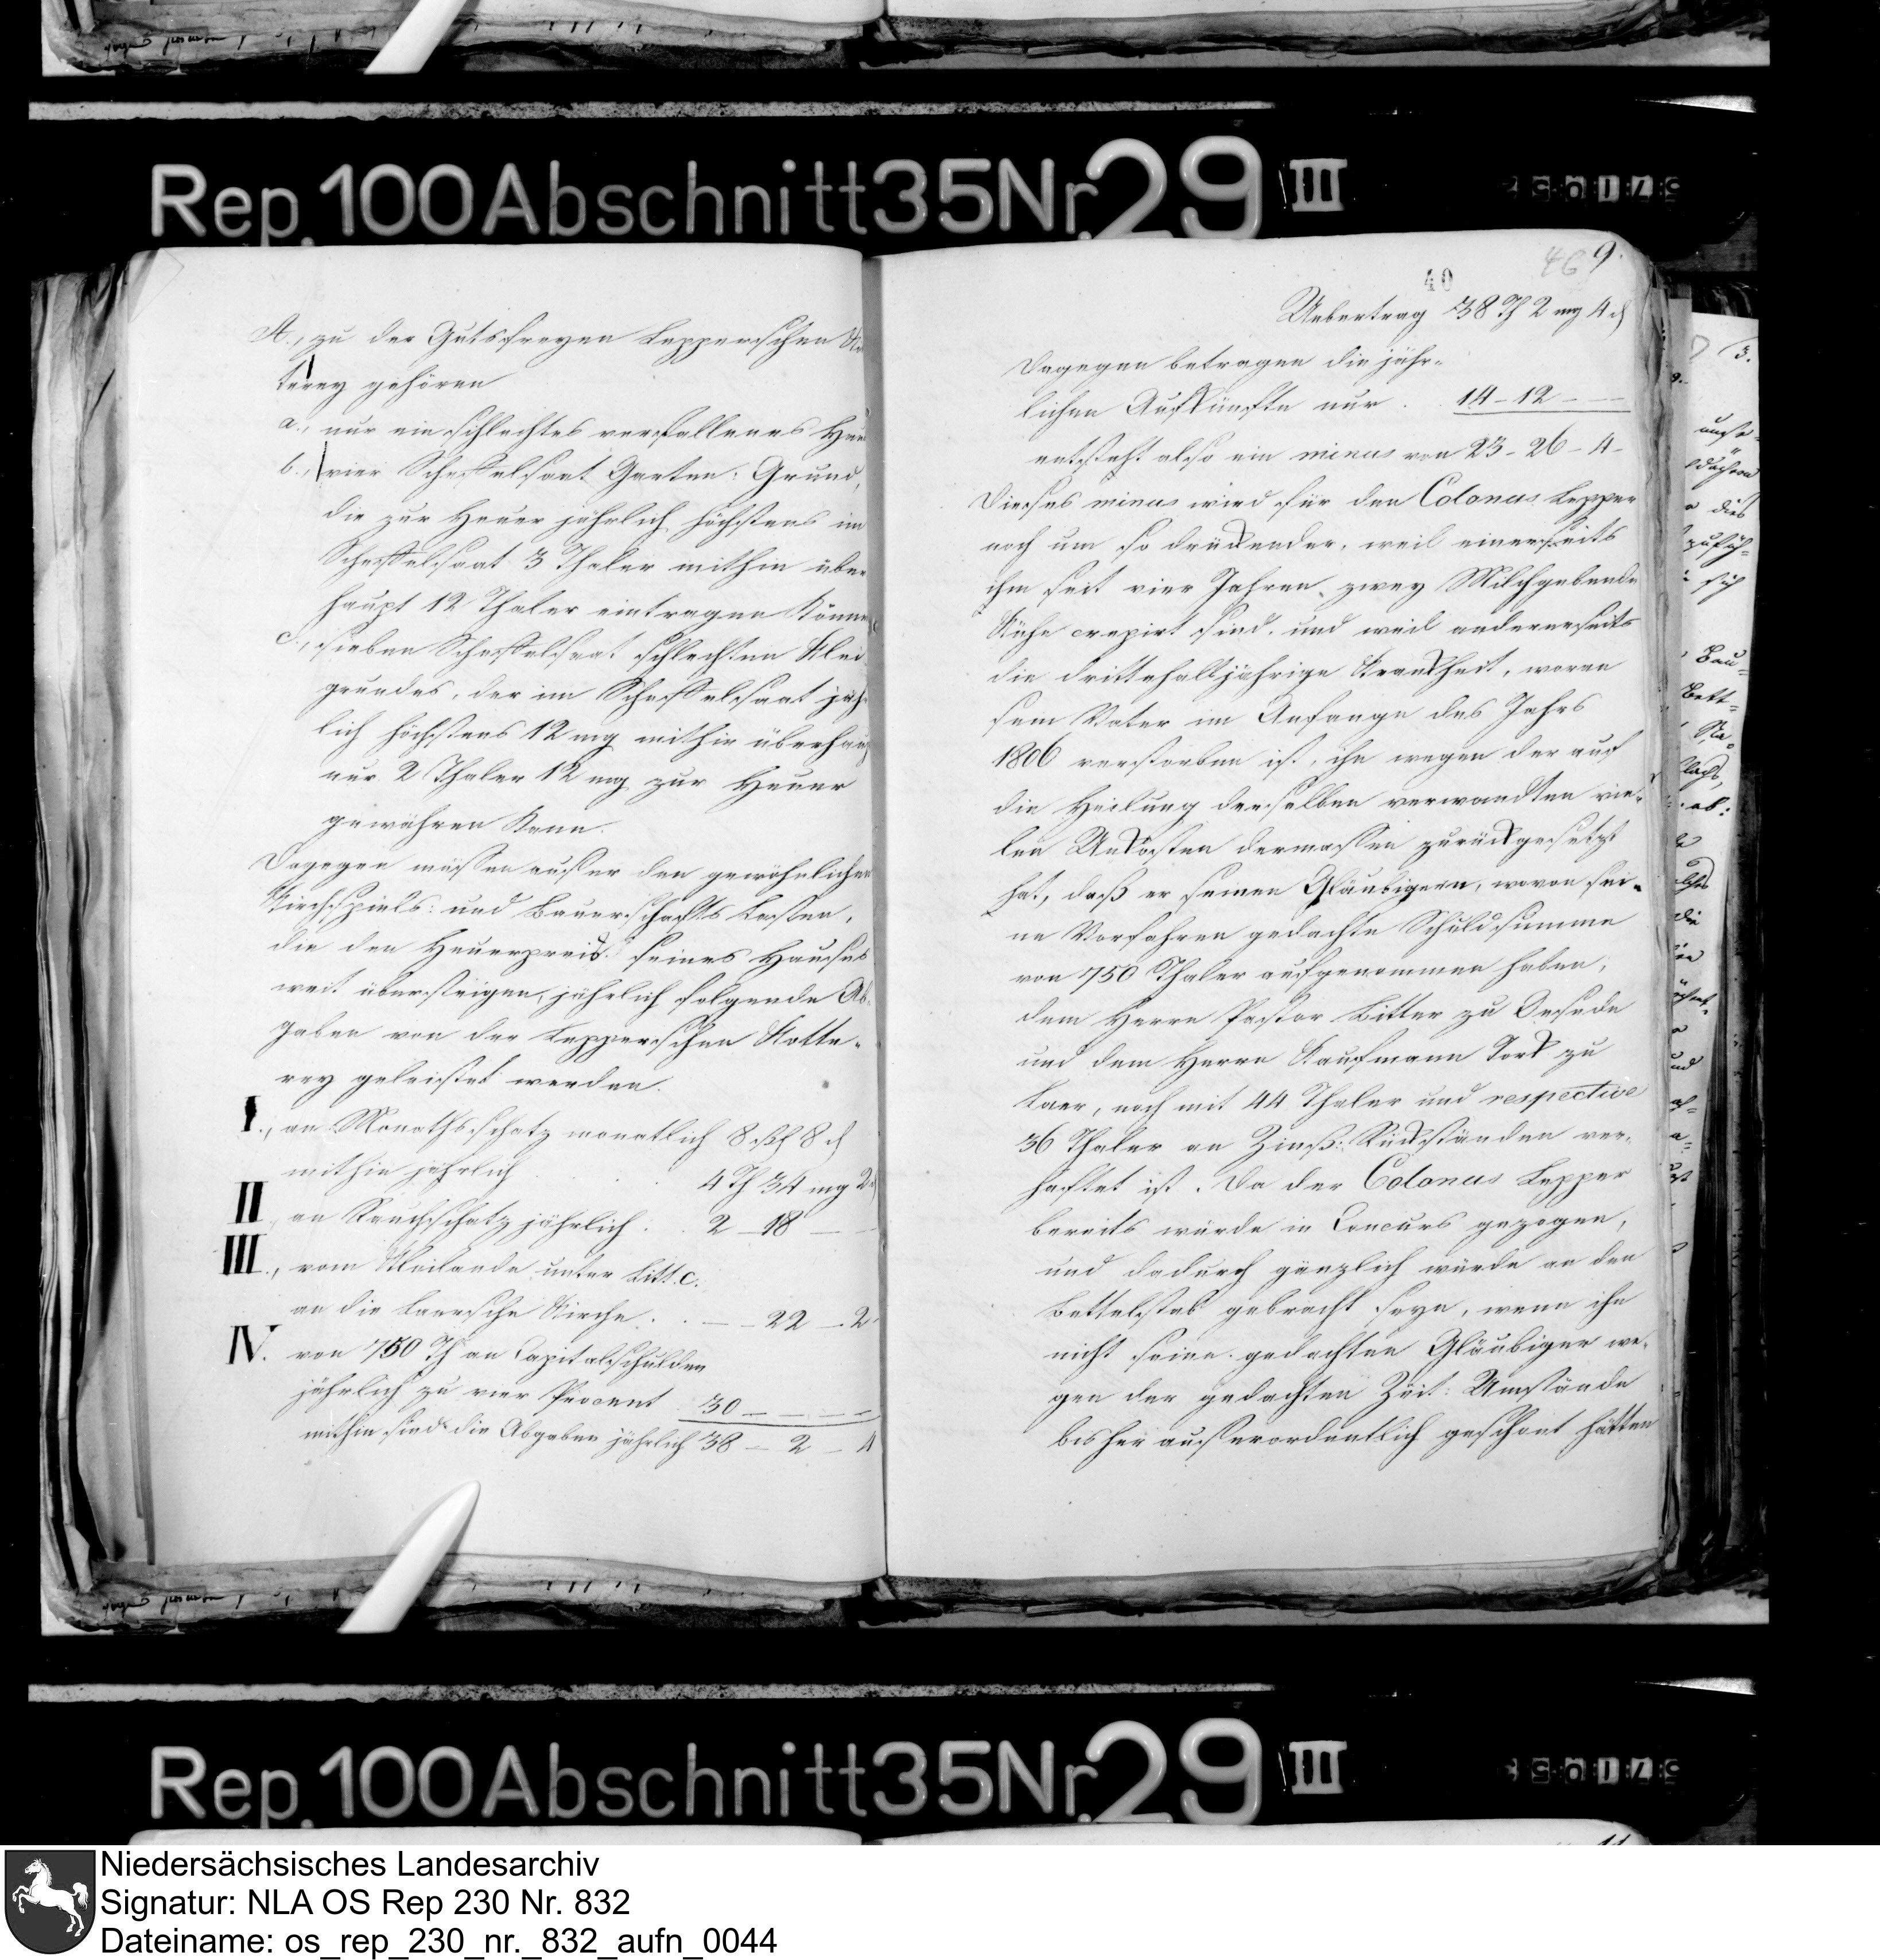 Rep. 100 Abschnitt 35 Nr. 29 III
A., zu der Gutsfreyen Lepperschen Kot
terey gehören
a., nur ein schlechtes verfallenes Haus
b., vier Scheffelsaat Garten: Grund,
die zur Heuer jährlich höchstens im
Scheffelsaat 3 Thaler mithin über
haupt 12 Thaler eintragen können
c., sieben Scheffelsaat schlechten Klei
grundes, der im Scheffelsaat jähr
lich höchstens 12 mg mithin überhaupt
nur 2 Thaler 12 mg zur Heuer
gewähren kann.
Dagegen müssen ausser den gewöhnlichen
Kirchspiels: und Bauerschafts Lasten,
die den Heuerpreis seines Hauses
weit übersteigen, jährlich folgende Ab-
gaben von der Lepperschen Kotte-
rey geleistet werden.
I., an Monathsschatz monatlich 8 ßh 8 d
mithin jährlich 4 Th 34 mg 2 d
II., an Rauchschatz jährlich . . 2 – 18 –
III., vom Kleilande unter Litt. c.
an die Laersche Kirche . . – – 22 – 2
IV. von 750 Th an Capitalschulden
jährlich zu vier Procent 30 – – –
mithin sind die Abgaben jährlich 38 – 2 – 4
46 9.
40
Uebertrag 38 Th 2 mg 4 d
Dagegen betragen die jähr-
lichen Aufkünfte nur . 14 – 12 – –
entsteht also ein minus von 23 – 26 – 4 –
Dieses minus wird für den Colonus Lepper
noch um so drückender, weil einerseits
ihm seit vier Jahren zwey Milchgebende
Kühe crepirt sind, und weil andererseits
die drittehalbjährige Krankheit, woran
sein Vater im Anfange des Jahrs
1806 verstorben ist, ihn wegen der auf
die Heilung derselben verwandten vie-
len Unkosten dermassen zurückgesetzt
hat, daß er seinen Gläubigern, wovon sei-
ne Vorfahren gedachte Schuldsumme
von 750 Thaler aufgenommen haben,
dem Herrn Pastor Bitter zu Oesede
und dem Herrn Kaufmann Tork zu
Laer, noch mit 44 Thaler und respective
36 Thaler an Zinß: Rückständen ver-
haftet ist. Da der Colonus Lepper
bereits würde in Concurs gezogen,
und dadurch gänzlich würde an den
Bettelstab gebracht seyn, wenn ihn
nicht seine gedachten Gläubiger we-
gen der gedachten Zeit: Umstände
bisher ausserordentlich geschont hätten
Rep. 100 Abschnitt 35 Nr. 29 III
Niedersächsisches Landesarchiv
Signatur: NLA OS Rep 230 Nr. 832
Dateiname: os_rep_230_nr._832_aufn_0044